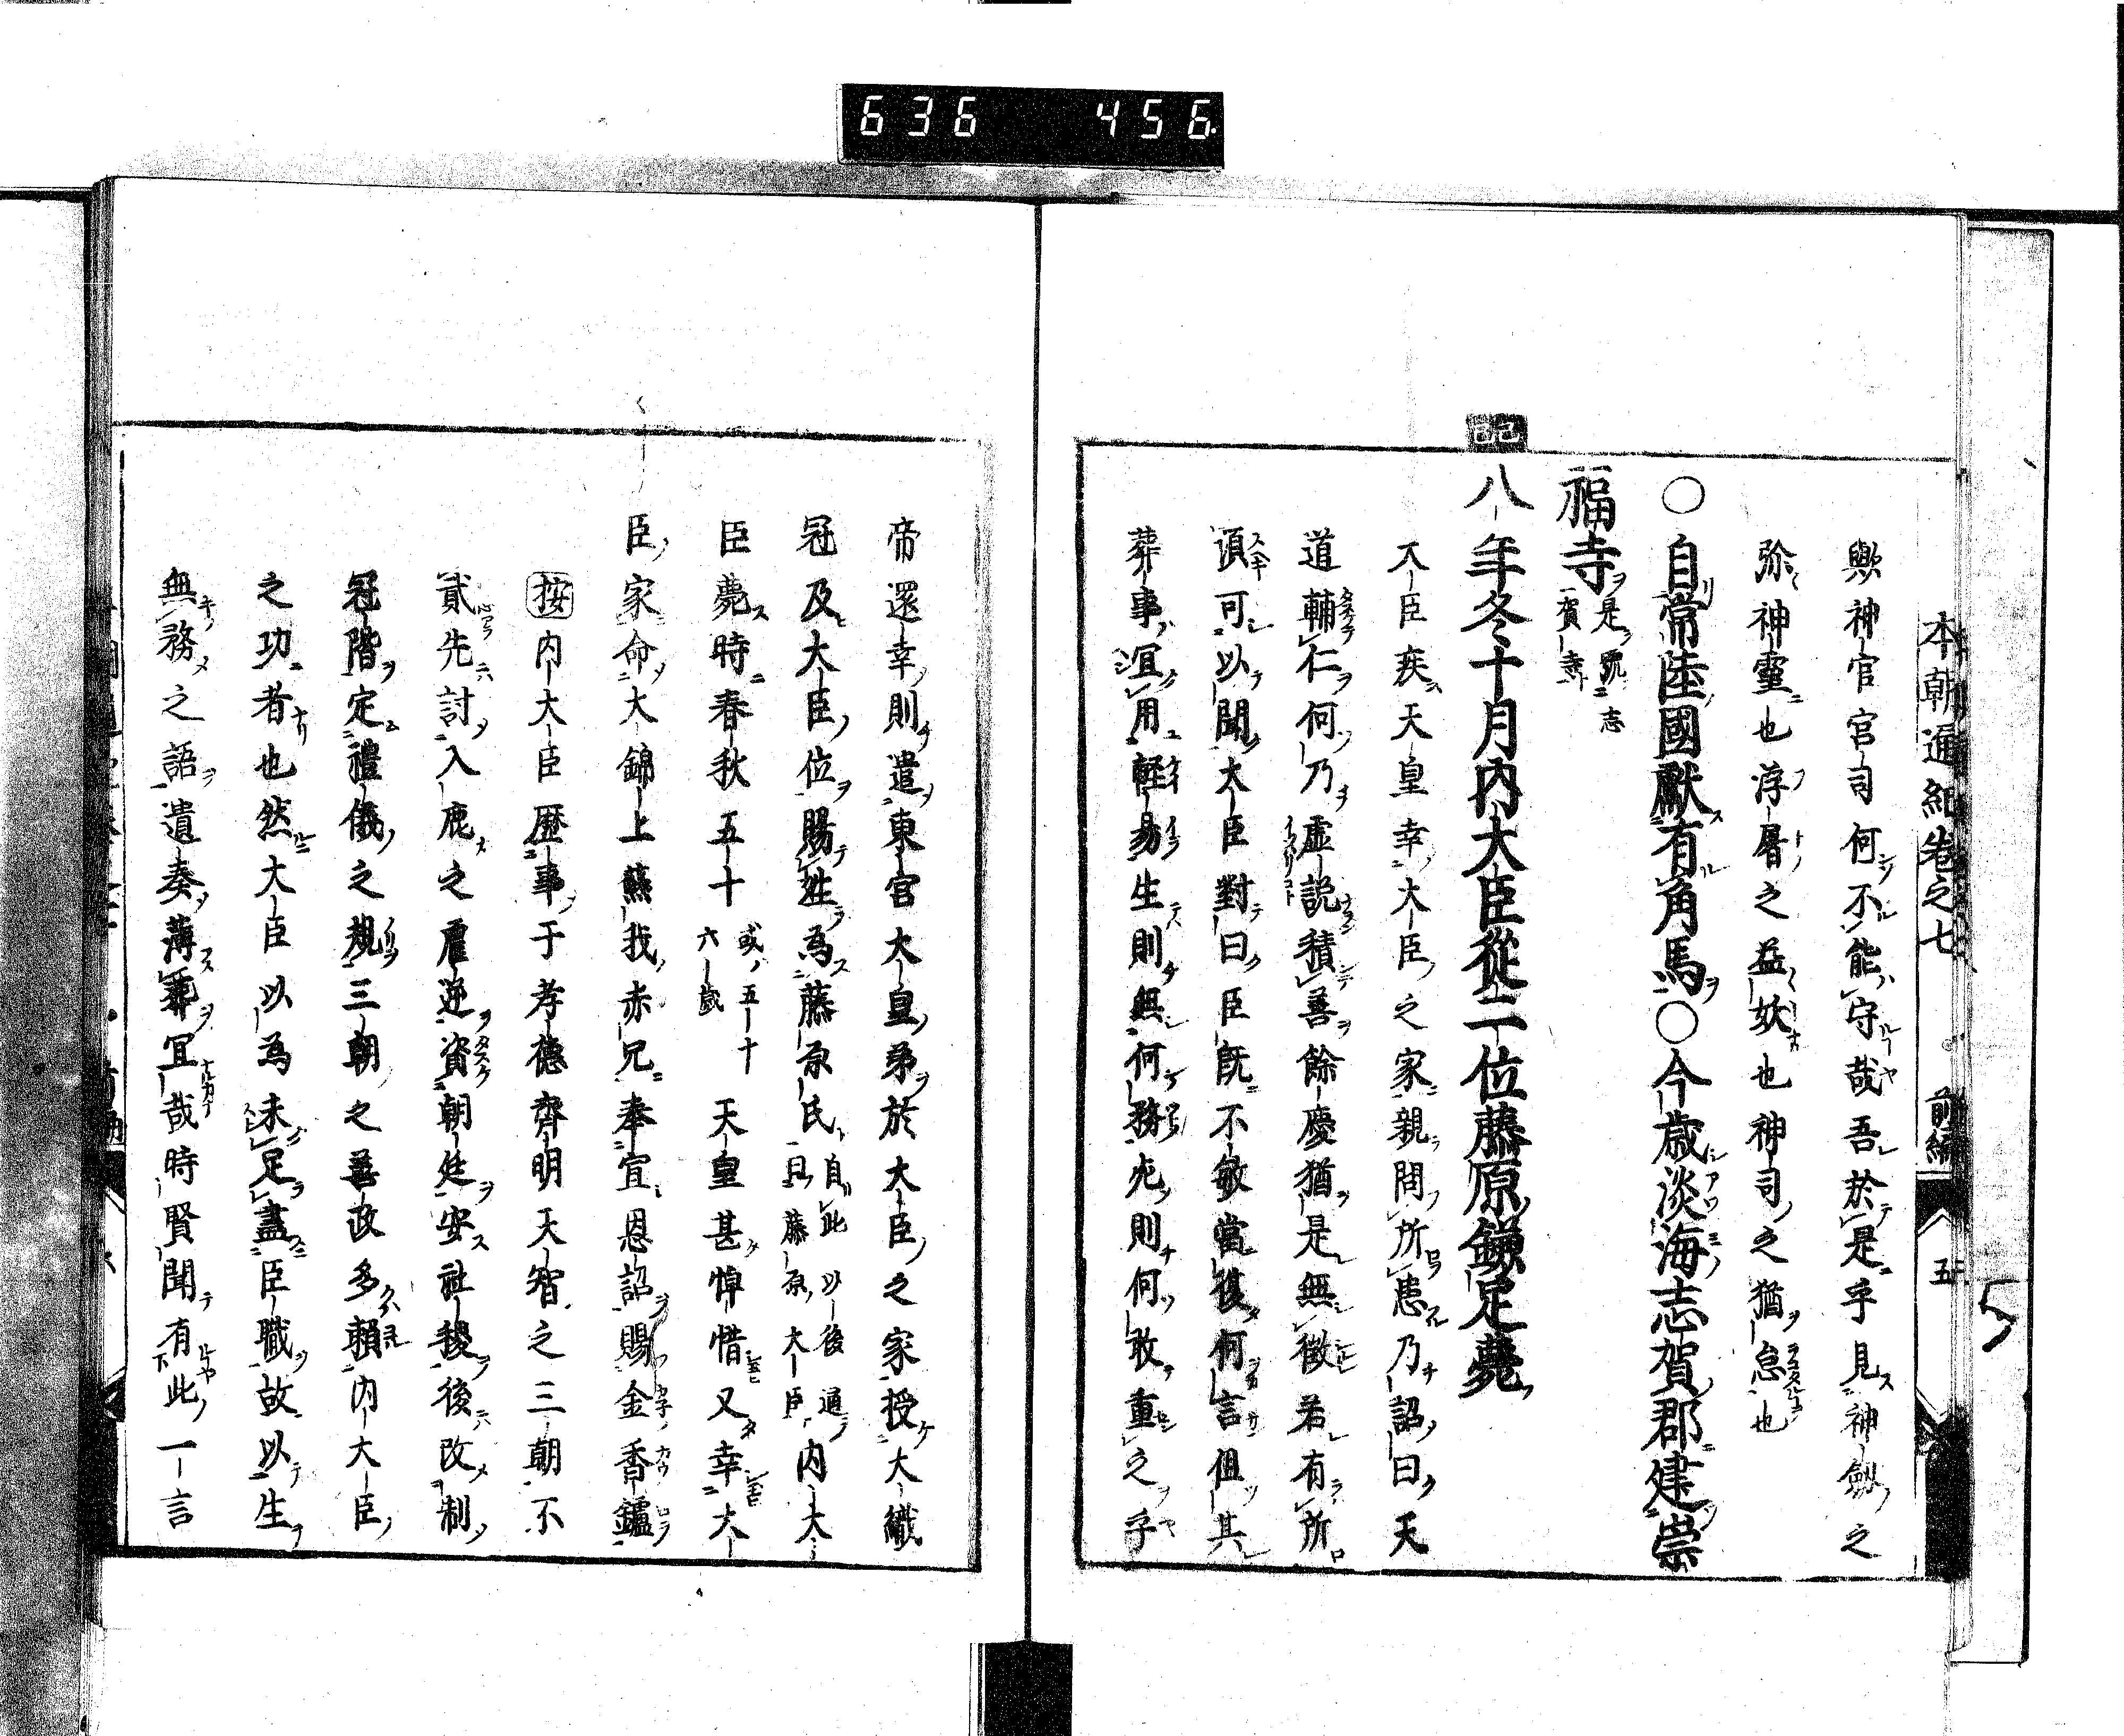 636 456
本朝通紀卷之七 前編 五
歟神官官司何不能守哉吾於是乎見神劔之
弥神靈也浮屠之益妖也神司之猶怠也
○自常陸國獻有角馬○今歲淡海志賀郡建崇
福寺是號志賀寺
八年冬十月内大臣從二位藤原鎌足薨
大臣疾天皇幸大臣之家親問所患乃詔曰天
道輔仁何乃虚説積善餘慶猶是無徴若有所
須可以聞大臣對曰臣既不敏當復何言但其
葬事冝用軽易生則無何務死則何敢重之乎
帝還幸則遣東宮大皇弟於大臣之家授大織
冠及大臣位賜姓爲藤原氏自此以後通曰藤原大臣内大
臣薨時春秋五十或五十六歲天皇甚悼惜又幸大
臣家命大錦上蘓我赤兄奉宣恩詔賜金香鑪
按内大臣歷事于孝德齊明天智之三朝不
貳先討入鹿之虐逆資朝廷安社稷後改制
冠階定禮儀之規三朝之善政多頼内大臣
之功者也然大臣以為未足盡臣職故以生
無務之語遺奏薄葬冝哉時賢聞有此一言
5